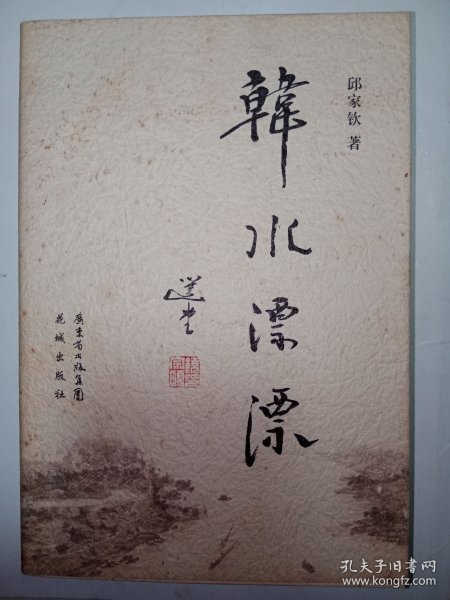 邱家钦 著
韓水漂漂
選堂
廣東省出版集團
花城出版社
孔夫子旧书网
www.kongfz.com